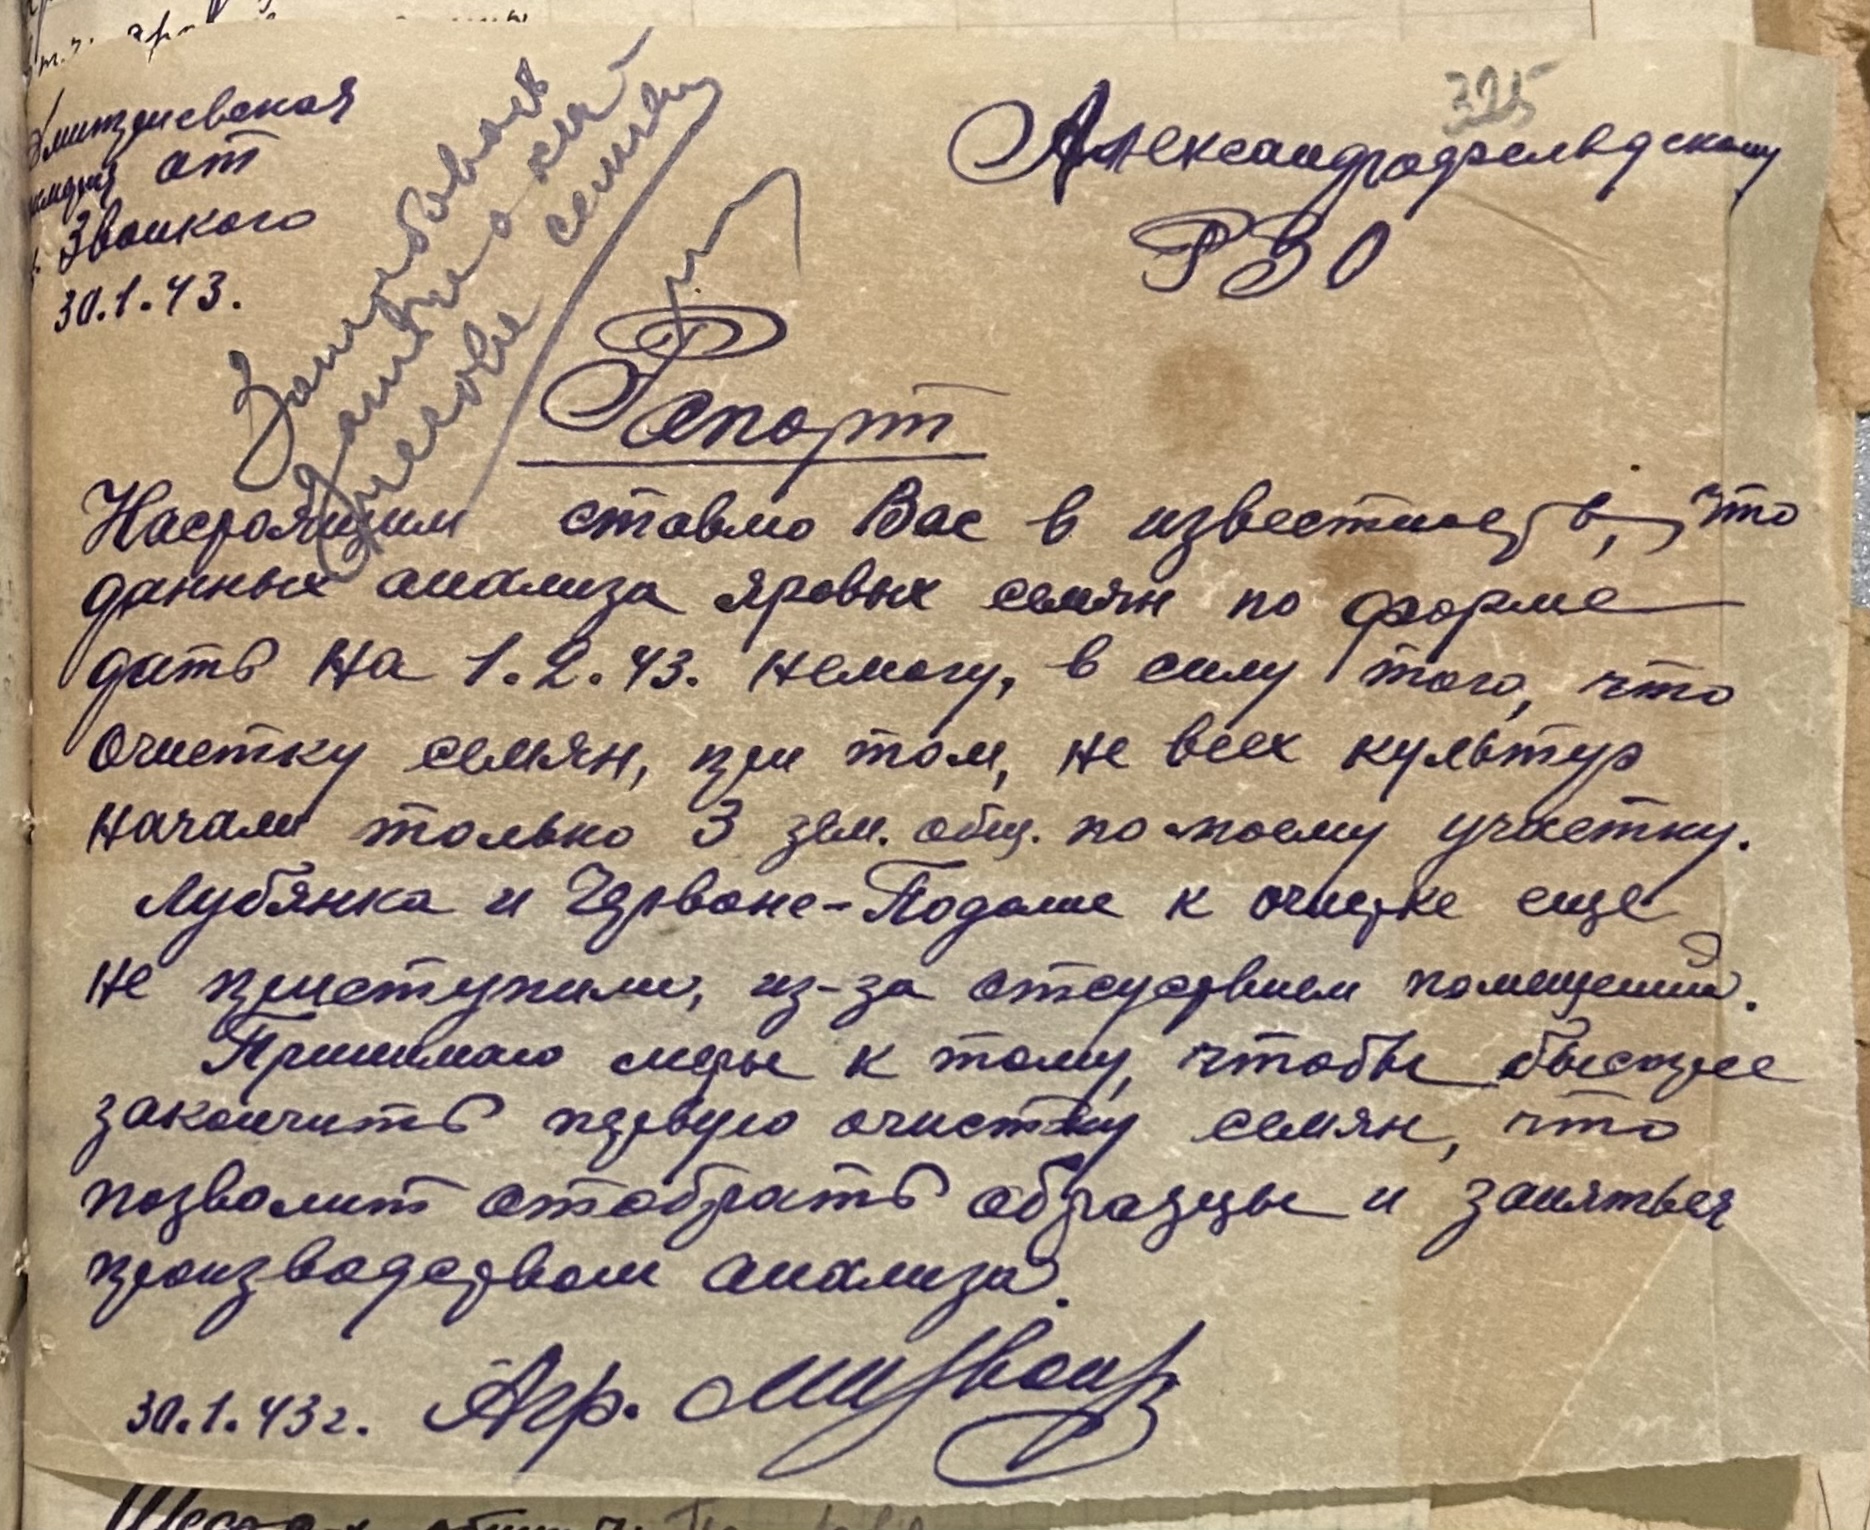 325
Дмитриевская
от
Звонкого
30.1.43.
Александрофельдскому
РЗО
Затребовать
семян
Рапорт
Настоящим ставлю Вас в известность, что
данных анализа яровых семян по форме
дать на 1.2.43. немогу, в силу того, что
очистку семян, при том, не всех культур
начали только 3 зем. общ. по моему участку.
Лубянка и Червоне-Подолье к очистке еще
не приступили, из-за отсутствием помещений.
Принимаю меры к тому, чтобы быстрее
закончить первую очистку семян, что
позволит отобрать образцы и заняться
производством анализа.
30.1.43г. Агр.